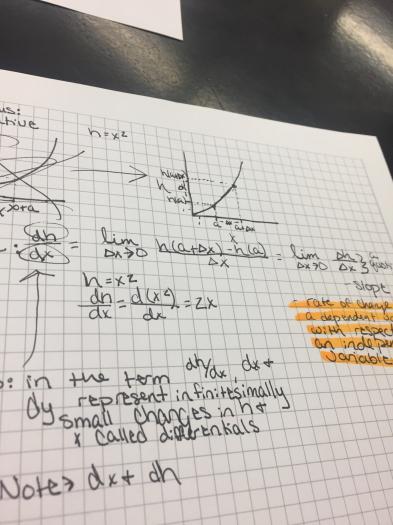 us:
ative
h=x²
x x+a
h(a+Δx)
h(a)
a a+Δx
x
dh/dx = lim Δx→0 h(a+Δx)-h(a)/Δx = lim Δx→0 Δh/Δx
- slope
- rate of change
a dependent
with respect
an indepen
variable
h=x²
dh/dx = d(x²)/dx = 2x
: in the term dh/dx, dx +
dy represent infinitesimally
small changes in h +
x called differentials
Note> dx + dh